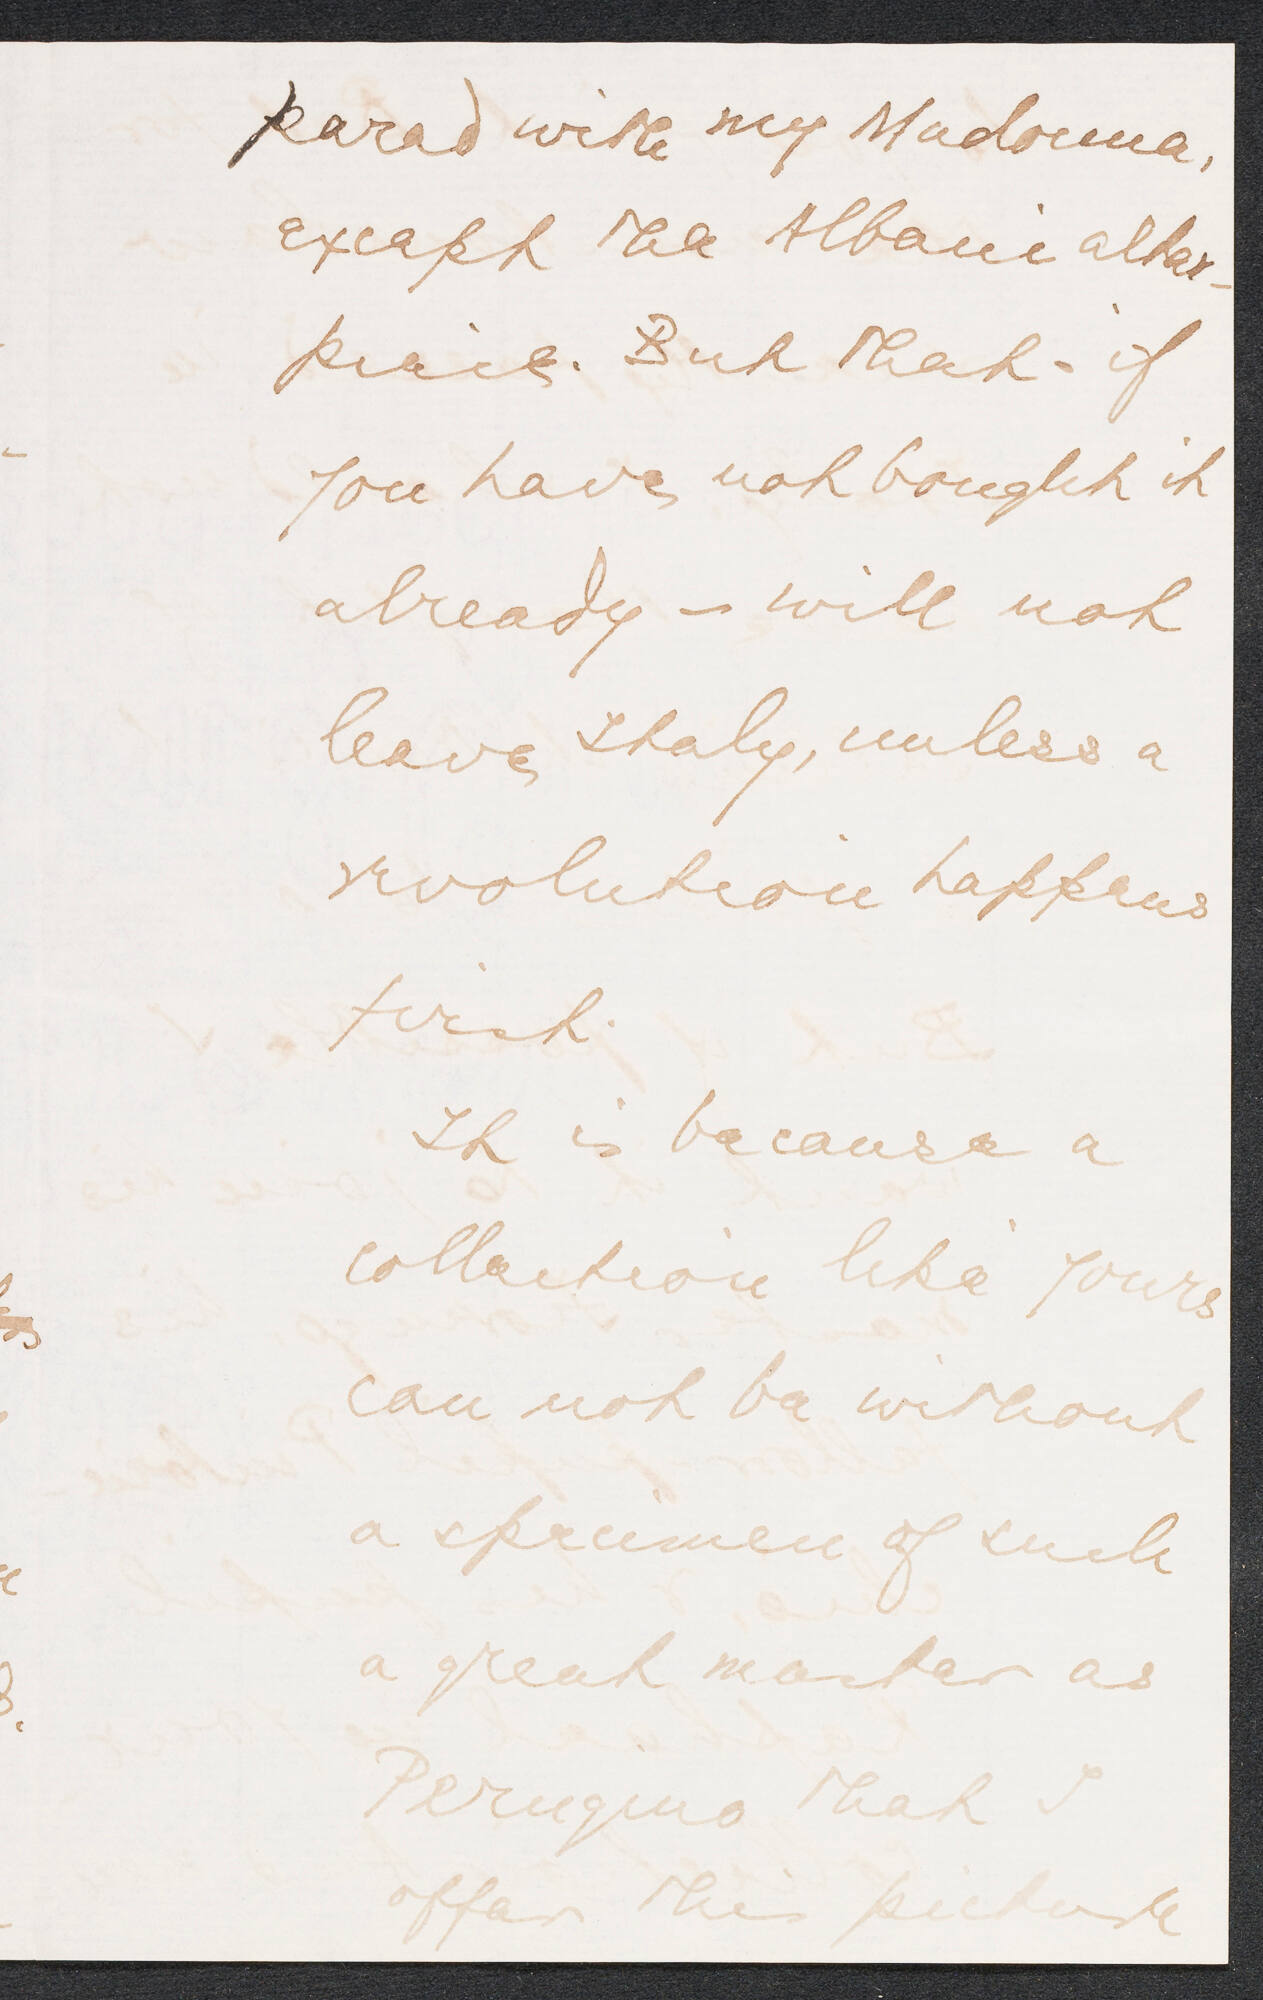 pared with my Madonna,
except the Albani altar-
piece. But that - if
you have not bought it
already - will not
leave Italy, unless a
revolution happens
first.
It is because a
collection like yours
can not be without
a specimen of such
a great master as
Perugino that I
offer this picture